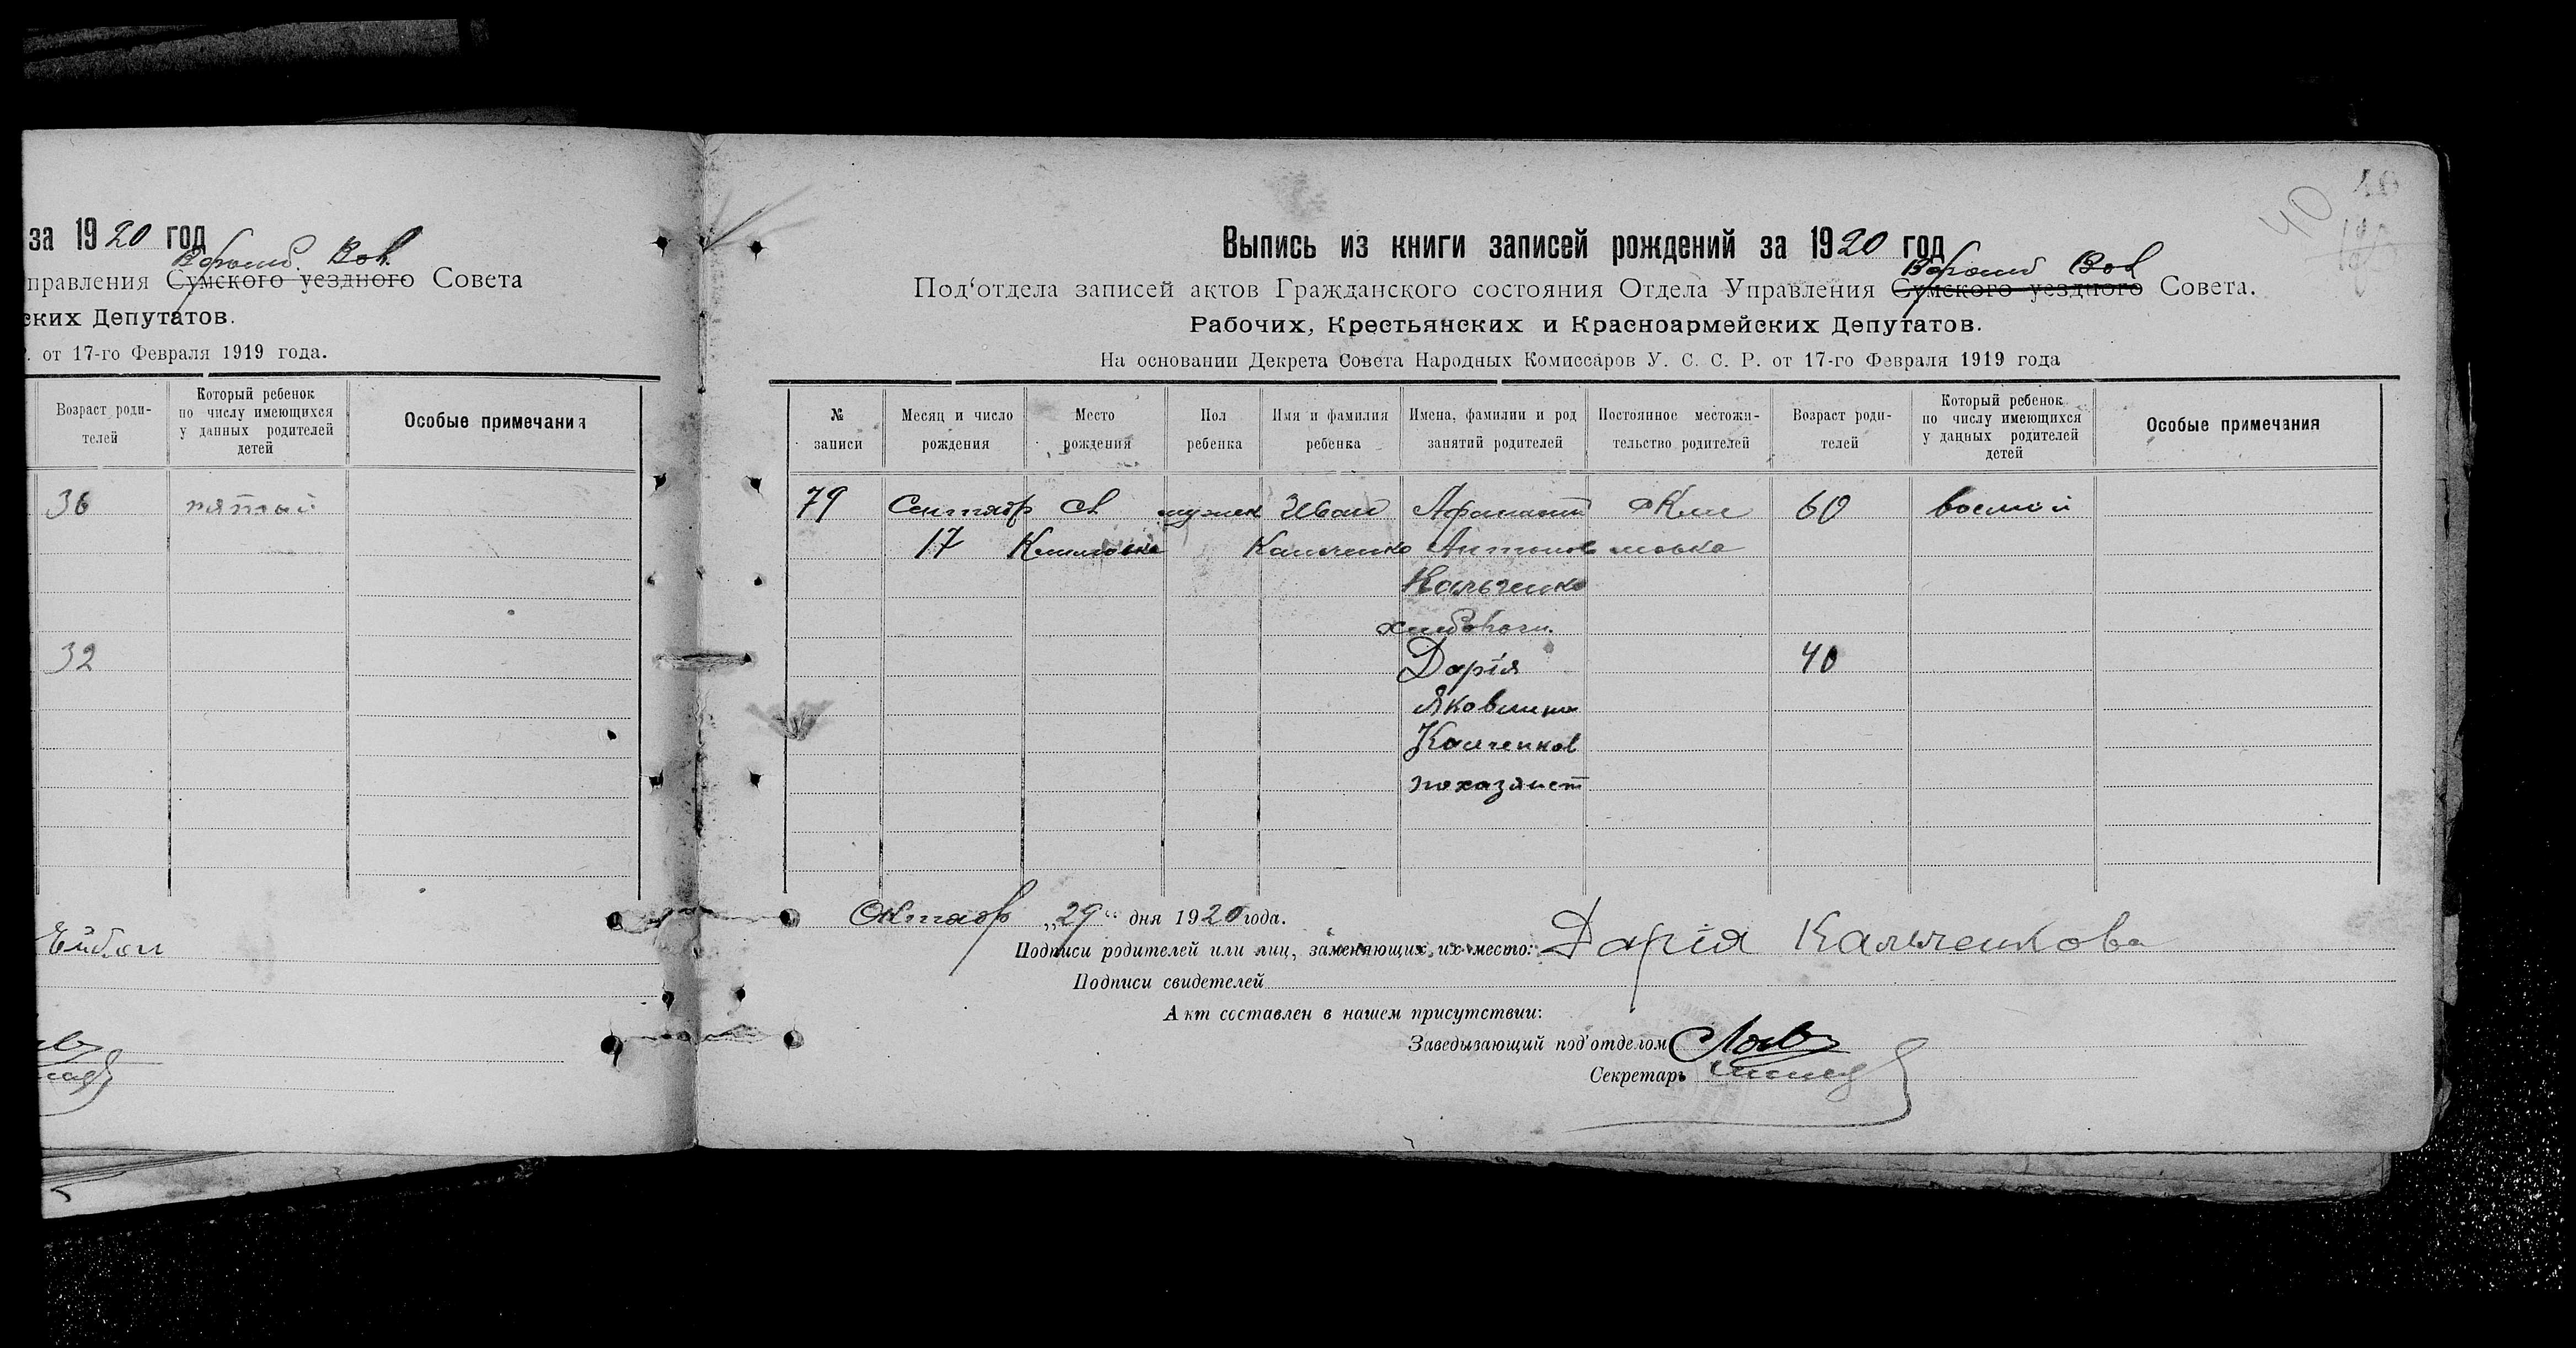 за 1920 год
Ворожб. Вол.
правления Сумского уездного Совета
ских Депутатов.
. от 17-го Февраля 1919 года.
Возраст роди-
телей
Который ребенок
по числу имеющихся
у данных родителей
детей
Особые примечания
36 пятый
32
40
Выпись из книги записей рождений за 1920 год
Ворожб Вол
Под‘отдела записей актов Гражданского состояния Отдела Управления Сумского уездного Совета.
Рабочих, Крестьянских и Красноармейских Депутатов.
На основании Декрета Совета Народных Комиссаров У. С. С. Р. от 17-го Февраля 1919 года
№
записи
Месяц и число
рождения
Место
рождения
Пол
ребенка
Имя и фамилия
ребенка
Имена, фамилии и род
занятий родителей
Постоянное местожи-
тельство родителей
Возраст роди-
телей
Который ребенок
по числу имеющихся
у данных родителей
детей
Особые примечания
79 Сентябр мужск Иван 60
17 Кальченко Антонов
Кальченко
Дарія 40
Яковлина
Октябр „29“ дня 1920 года.
Подписи родителей или лиц, заменяющих их место: Дарія Кальченкова
Подписи свидетелей
Акт составлен в нашем присутствии:
Заведывающий под‘отделом
Секретарь